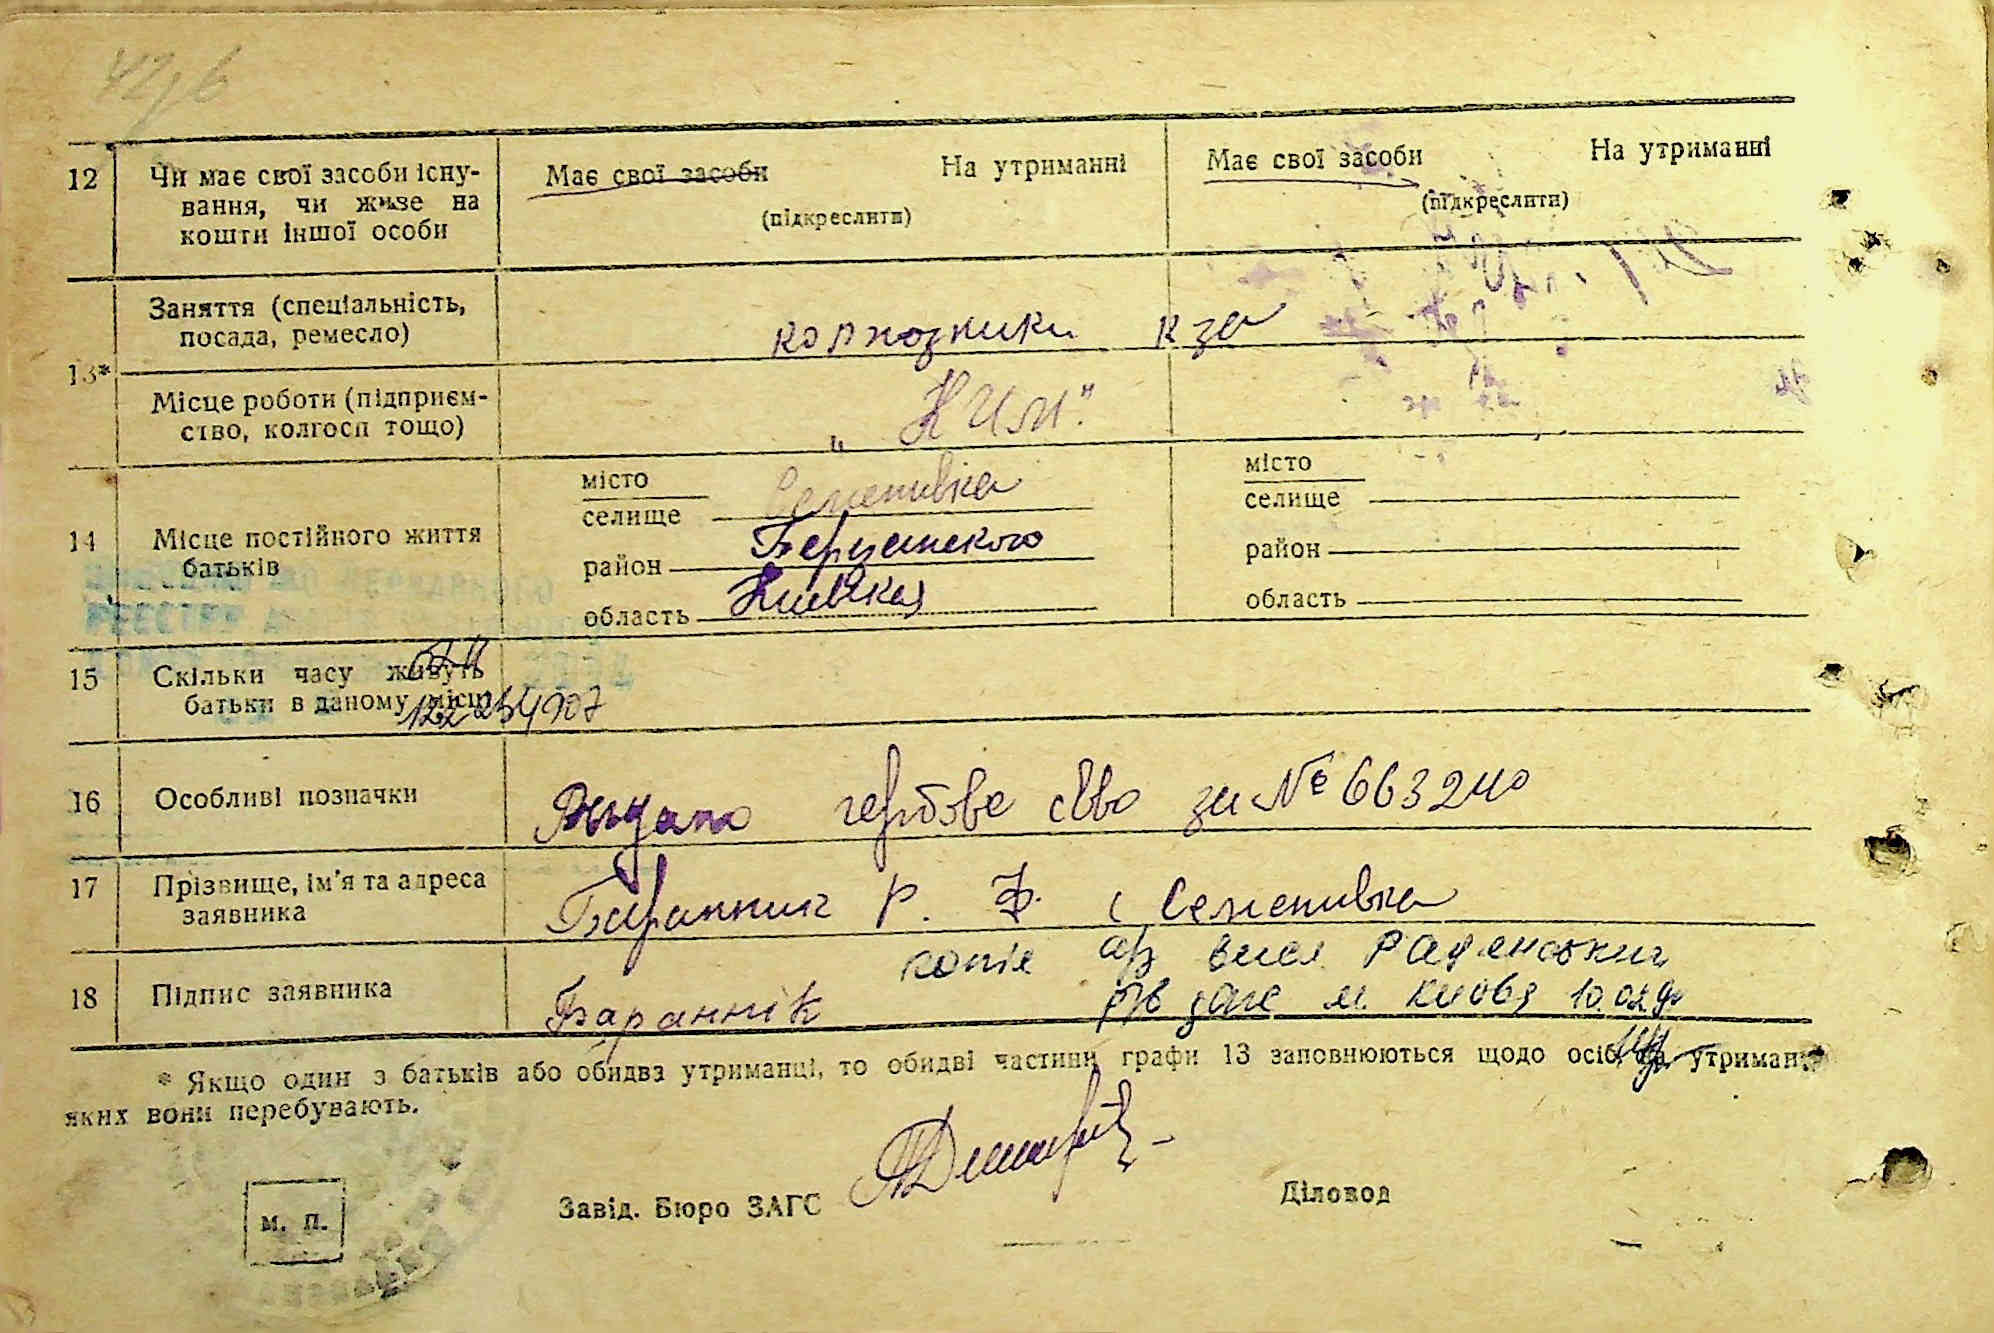 12 Чи має свої засоби існу-
вання, чи живе на
кошти іншої особи
Має свої засоби На утриманні
(підкреслити)
Має свої засоби На утриманні
(підкреслити)
13*
Заняття (спеціальність,
посада, ремесло)
колхозники к-за
Місце роботи (підприєм-
ство, колгосп тощо)
„КИМ"
14 Місце постійного життя
батьків
місто
селище Семенівка
район
область Київська
місто
селище
район
область
15 Скільки часу живуть
батьки в даному місці
16 Особливі позначки
Видано гербове св-во за № 663240
17 Прізвище, ім'я та адреса
заявника
Баранник Р. Ф. с Семенивка
18 Підпис заявника
Баранник
копіє
м. Києва 10.02
* Якщо один з батьків або обидва утриманці, то обидві частини графи 13 заповнюються щодо осіб, на утриманні
яких вони перебувають.
м. п.
Завід. Бюро ЗАГС
Діловод